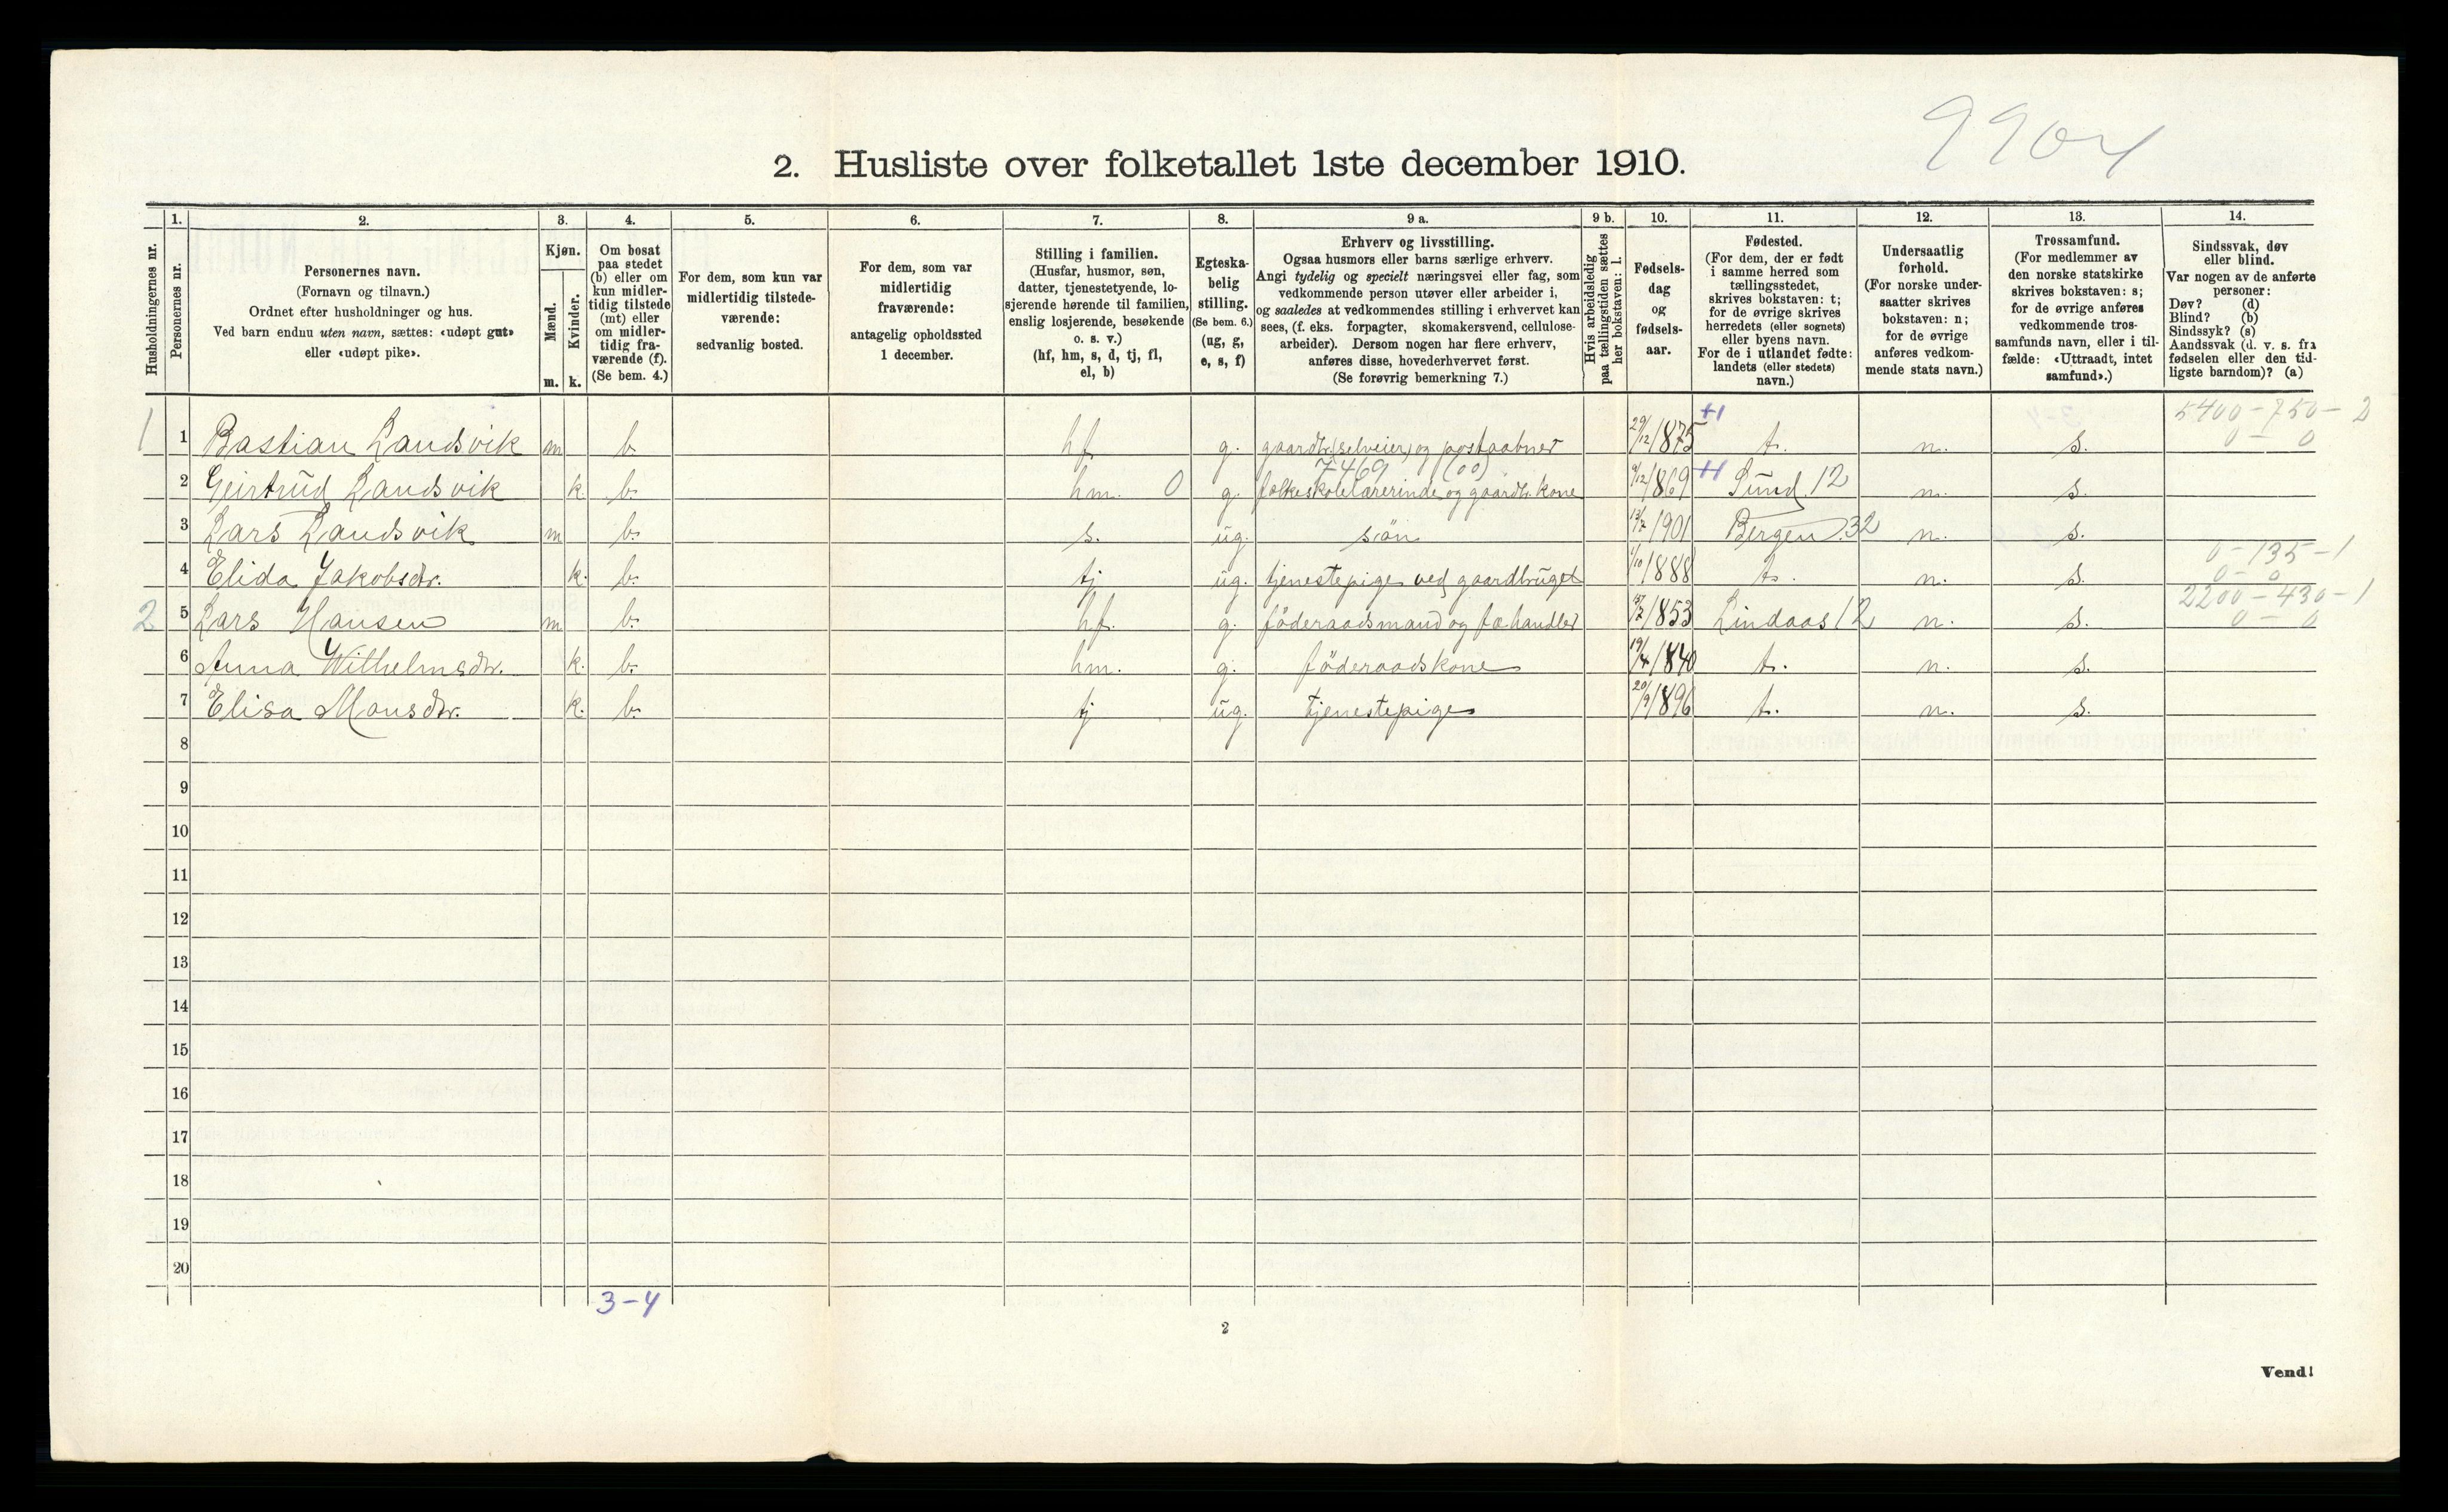 9904
2. Husliste over folketallet 1ste december 1910.
1. 2. 3. 4. 5. 6. 7. 8. 9 a. 9 b. 10. 11. 12. 13. 14.
Husholdningernes nr.
Personernes nr.
Personernes navn.
(Fornavn og tilnavn.)
Ordnet efter husholdninger og hus.
Ved barn endnu uten navn, sættes: «udøpt gut»
eller «udøpt pike».
Kjøn.
Mænd.
Kvinder.
m. k.
Om bosat
paa stedet
(b) eller om
kun midler-
tidig tilstede
(mt) eller
om midler-
tidig fra-
værende (f).
(Se bem. 4.)
For dem, som kun var
midlertidig tilstede-
værende:
sedvanlig bosted.
For dem, som var
midlertidig
fraværende:
antagelig opholdssted
1 december.
Stilling i familien.
(Husfar, husmor, søn,
datter, tjenestetyende, lo-
sjerende hørende til familien,
enslig losjerende, besøkende
o. s. v.)
(hf, hm, s, d, tj, fl,
el, b)
Egteska-
belig
stilling.
(Se bem. 6.)
(ug, g,
e, s, f)
Erhverv og livsstilling.
Ogsaa husmors eller barns særlige erhverv.
Angi tydelig og specielt næringsvei eller fag, som
vedkommende person utøver eller arbeider i,
og saaledes at vedkommendes stilling i erhvervet kan
sees, (f. eks. forpagter, skomakersvend, cellulose-
arbeider). Dersom nogen har flere erhverv,
anføres disse, hovederhvervet først.
(Se forøvrig bemerkning 7.)
Hvis arbeidsledig
paa tællingstiden sættes
her bokstaven: l.
Fødsels-
dag
og
fødsels-
aar.
Fødested.
(For dem, der er født
i samme herred som
tællingsstedet,
skrives bokstaven: t;
for de øvrige skrives
herredets (eller sognets)
eller byens navn.
For de i utlandet fødte:
landets (eller stedets)
navn.)
Undersaatlig
forhold.
(For norske under-
saatter skrives
bokstaven: n;
for de øvrige
anføres vedkom-
mende stats navn.)
Trossamfund.
(For medlemmer av
den norske statskirke
skrives bokstaven: s;
for de øvrige anføres
vedkommende tros-
samfunds navn, eller i til-
fælde: «Uttraadt, intet
samfund».)
Sindssvak, døv
eller blind.
Var nogen av de anførte
personer:
Døv? (d)
Blind? (b)
Sindssyk? (s)
Aandssvak (d. v. s. fra
fødselen eller den tid-
ligste barndom)? (a)
+1 5400-750-2
1 1 Bastian Landsvik m b. hf. g. gaardbr. (selveier) og postaabner 29/12 1875 t. n. s. 0-0
7469 (00)
2 Geirtrud Landsvik k. b. hm. 0 g. folkeskolelærerinde og gaardb. kone 9/12 1869 +1 Sund 12 n. s.
3 Lars Landsvik m b. s. ug. sön 13/7 1901 Bergen 32 n. s.
0-135-1
4 Elida Jakobsdr. k. b. tj ug. tjenestepige ved gaardbruget 1/10 1888 t. n. s. 0-0
2200-430-1
2 5 Lars Hansen m b. hf. g. föderaadsmand og fæhandler 1853 Lindaas 12 n. s. 0-0
6 Anna Wilhelmsdr. k. b. hm. g. föderaadskone 19/4 1840 t. n. s.
7 Elisa Monsdr. k. b. tj ug. tjenestepige 20/9 1896 t. n. s.
8
9
10
11
12
13
14
15
16
17
18
19
20
3-4
2
Vend!